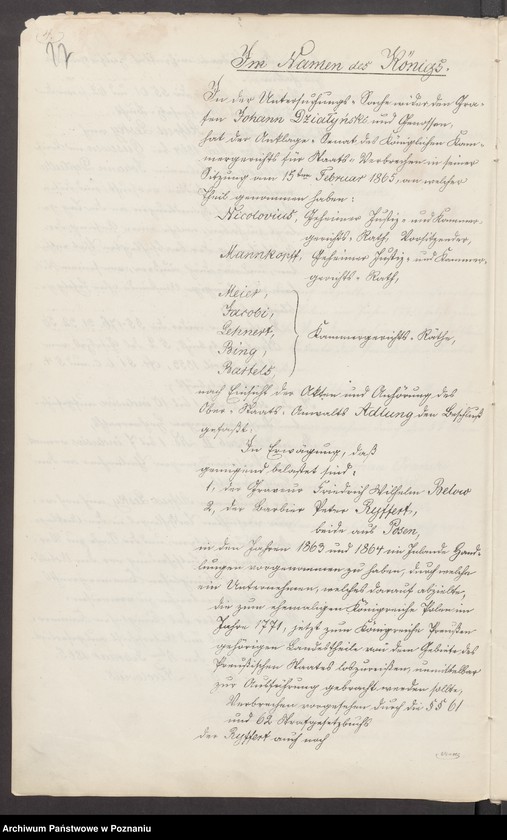 22
Im Namen des Königs.
In der Untersuchungs-Sache wider den Gra-
fen Johann Działyński und Genossen
hat der Anklage-Senat des Königlichen Kam-
mergerichts für Staats-Verbrechen in seiner
Sitzung am 15ten Februar 1865, an welcher
Theil genommen haben:
Nicolovius, Geheimer Justiz- und Kammer-
gerichts-Rath, Vorsitzender,
Mannkopff, Geheimer Justiz- und Kammer-
gerichts-Rath,
Meier,
Jacobi,
Lehnert,
Bing,
Bartels
Kammergerichts-Räthe,
nach Einsicht der Akten und Anhörung des
Ober-Staats-Anwalts Adlung den Beschluß
gefaßt:
In Erwägung, daß
genügend belastet sind,
1, der Graveur Friedrich Wilhelm Below
2, der Barbier Peter Ryffert,
beide aus Posen,
in den Jahren 1863 und 1864 im Inlande Hand-
lungen vorgenommen zu haben, durch welche
ein Unternehmen, welches darauf abzielte,
die zum ehemaligen Königreiche Polen im
Jahre 1771, jetzt zum Königreiche Preußen
gehörigen Landestheile von dem Gebiete des
Preußischen Staates loszureißen, unmittelbar
zur Ausführung gebracht werden sollte,
Verbrechen vorgesehen durch die §§ 61
und 62 Strafgesetzbuchs
der Ryffert auch noch
Archiwum Państwowe w Poznaniu
szukajwarchiwach.gov.pl